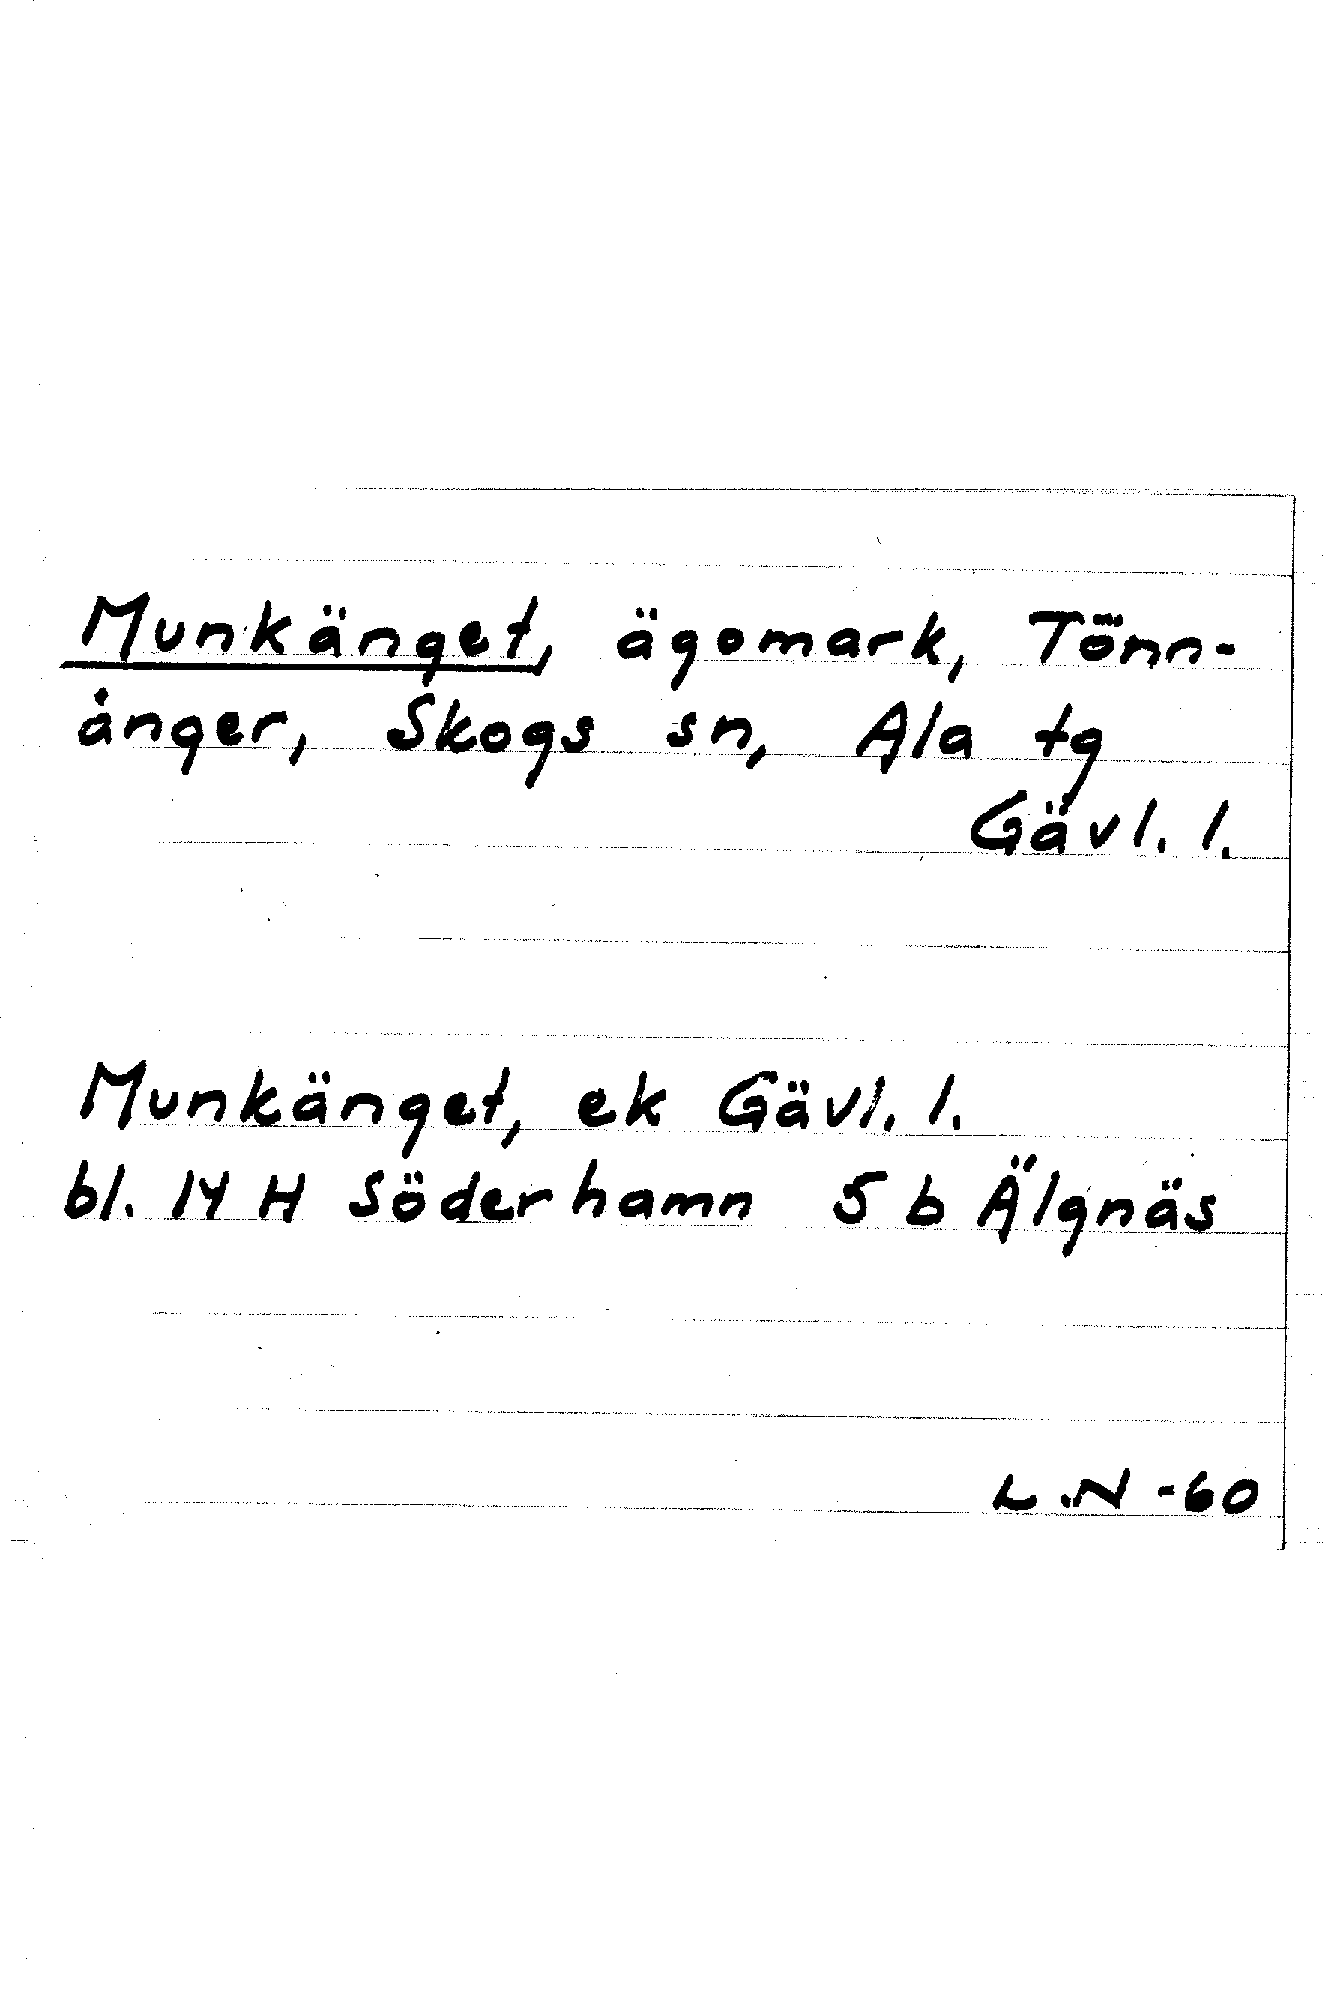 Munkänget, ägomark, Tönn-
ånger, Skogs sn, Ala tg
Gävl. l.
Munkänget, ek Gävl. l.
bl. 14 H Söderhamn 5 b Älgnäs
L.N -60